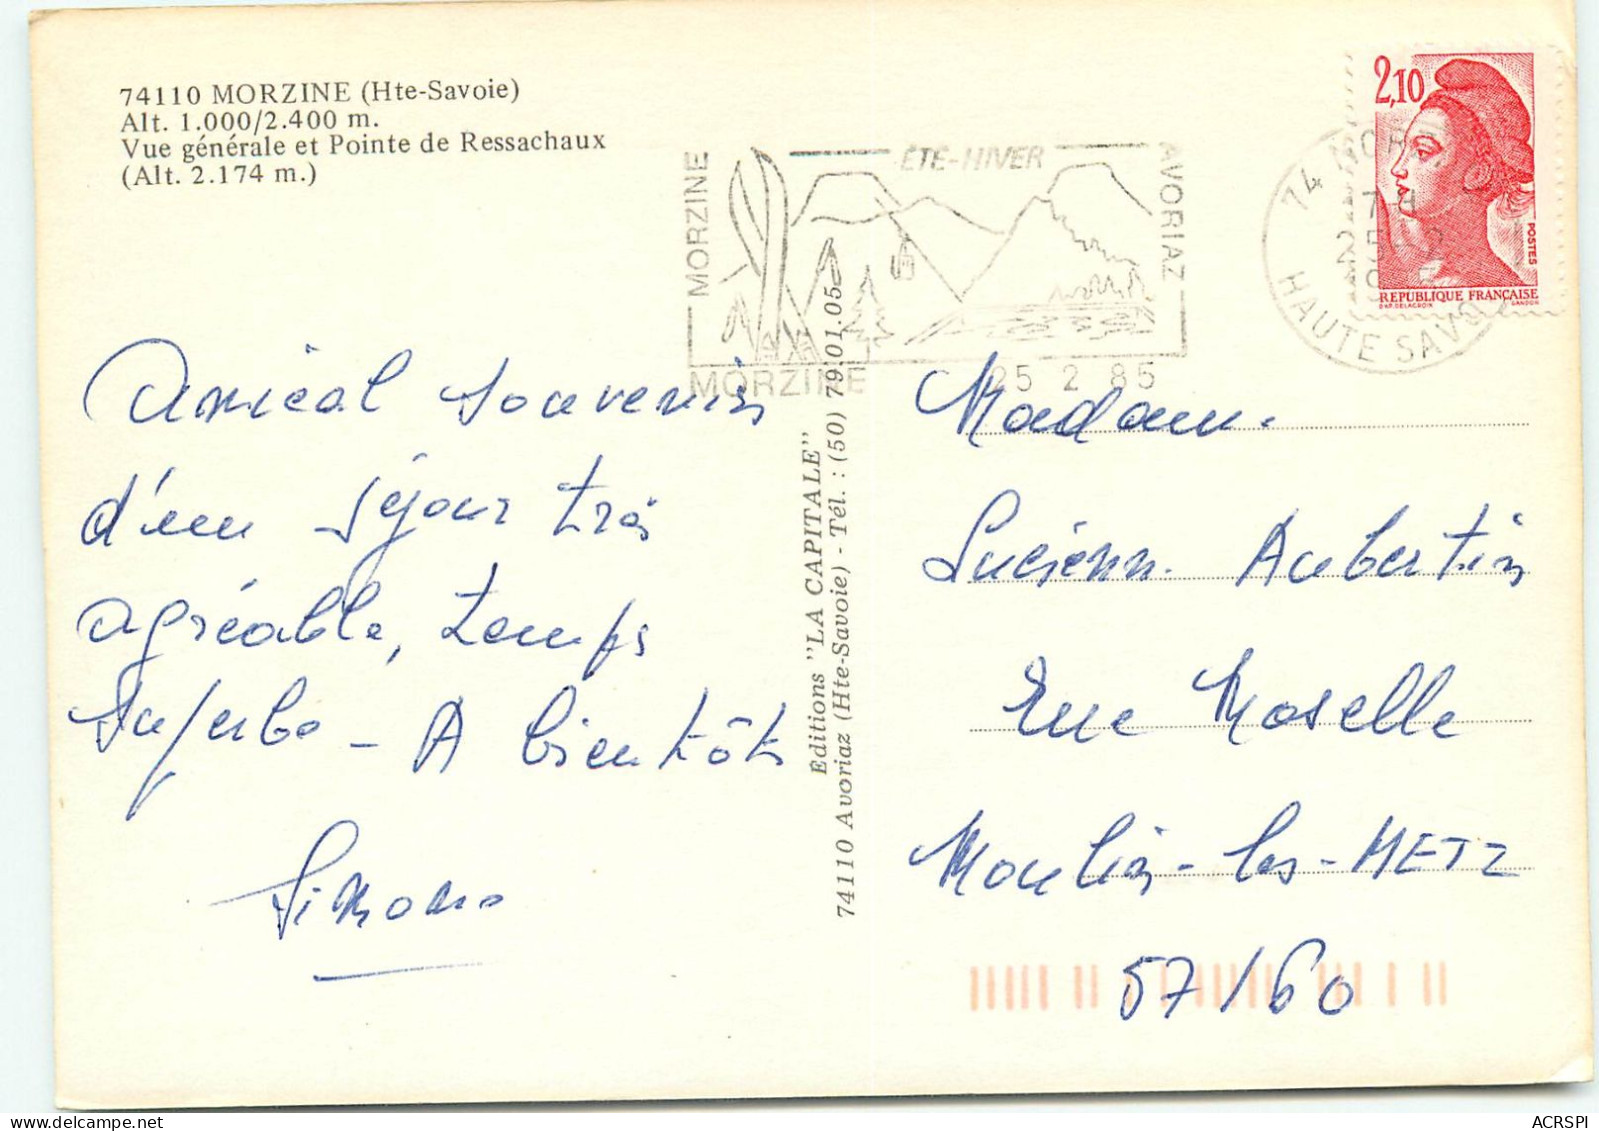 74110 MORZINE (Hte-Savoie)
Alt. 1.000/2.400 m.
Vue générale et Pointe de Ressachaux
(Alt. 2.174 m.)
Amical souvenir
d'un séjour très
agréable, temps
superbe - A bientôt
Simone
Editions "LA CAPITALE"
74110 Avoriaz (Hte-Savoie) - Tél. : (50) 79.01.05
MORZINE
ÉTÉ-HIVER
AVORIAZ
MORZINE
25 2 85
74 MOR
HAUTE SAVO
2,10
POSTES
REPUBLIQUE FRANÇAISE
D'AP. DELACROIX GANDON
Madame
Lucienne Aubertin
Rue Moselle
Moulin-les-METZ
57/60
ACRSPI